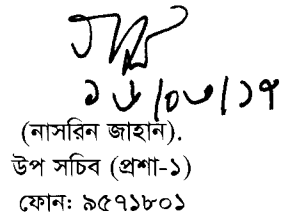 ১৬/০৩/১৭
(নাসরিন জাহান).
উপ সচিব (প্রশা-১)
ফোন: ৯৫৭১৮০১